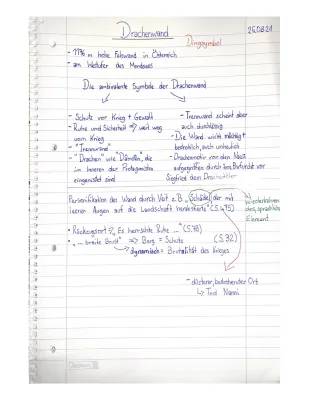 Drachenwand
25.08.21
Dingsymbol
- 1176 m hohe Felswand in Österreich
- am Westufer des Mondsees
Die ambivalente Symbole der Drachenwand
- Schutz vor Krieg + Gewalt
- Ruhe und Sicherheit → weit weg
vom Krieg
- "Trennwand"
- "Drachen" wie "Dämonen", die
im Inneren der Protagonisten
eingenistet sind
- Trennwand scheint aber
auch durchlässig
- Die Wand wirkt mächtig +
bedrohlich, auch unheilvoll
- Drachenmotiv von den Nazis
aufgegriffen durch ihre Ehrfurcht vor
Siegfried dem Drachentöter
Personifikation der Wand durch Veit z.B. „Schädel, der mit
leeren Augen auf die Landschaft herabstarrte" (S. 475)
des sprachliche
Element
• Rückzugsort → „Es herrschte Ruhe ..." (S.78)
• „... breite Brust" => Berg = Schutz (S.32)
dynamisch = Brutalität des Krieges
- düsterer, bedrohender Ort
↳ Tod Nanni